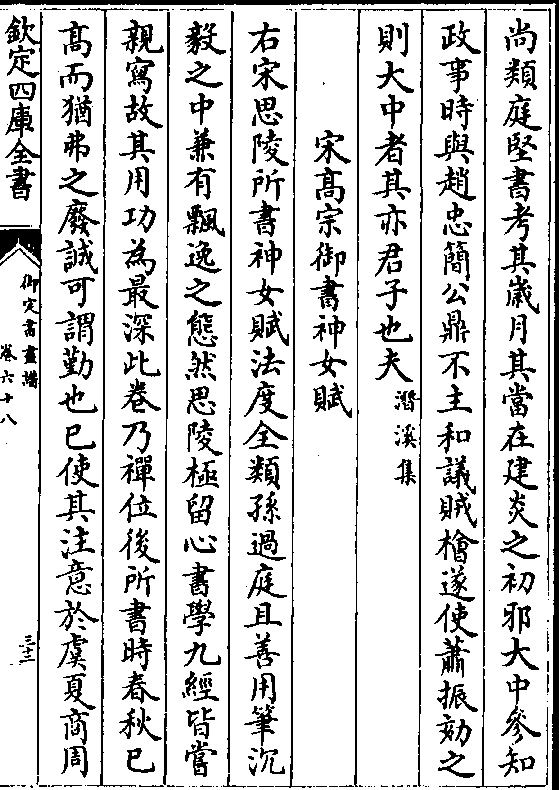 尚類庭堅書考其嵗月其當在建炎之初邪大中參知
政事時與趙忠簡公鼎不主和議賊檜遂使蕭振劾之
則大中者其亦君子也夫潛溪集
宋髙宗御書神女賦
右宋思陵所書神女賦法度全類孫過庭且善用筆沉
毅之中兼有飄逸之態然思陵極留心書學九經皆嘗
親寫故其用功為最深此巻乃禪位後所書時春秋已
髙而猶弗之廢誠可謂勤也已使其注意於虞夏商周
欽定四庫全書
御定書畫譜
巻六十八
三十二